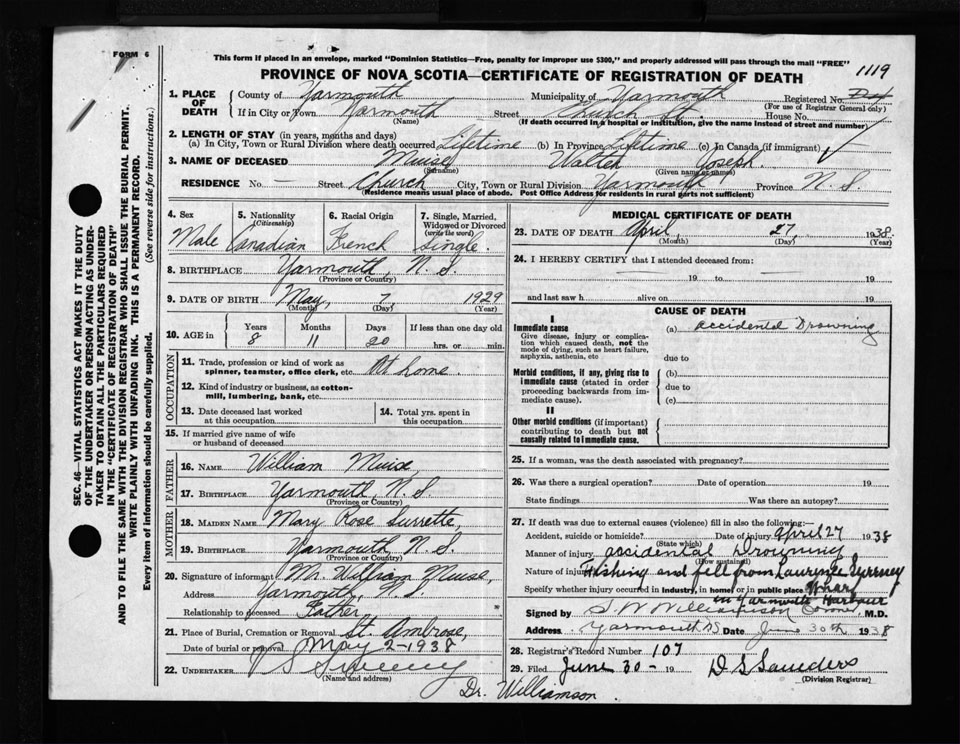 FORM 6
This form if placed in an envelope, marked "Dominion Statistics—Free, penalty for improper use $300," and properly addressed will pass through the mail "FREE"
1119
PROVINCE OF NOVA SCOTIA—CERTIFICATE OF REGISTRATION OF DEATH
SEC. 46—VITAL STATISTICS ACT MAKES IT THE DUTY
OF THE UNDERTAKER OR PERSON ACTING AS UNDER-
TAKER TO OBTAIN ALL THE PARTICULARS REQUIRED
IN THE "CERTIFICATE OF REGISTRATION OF DEATH"
AND TO FILE THE SAME WITH THE DIVISION REGISTRAR WHO SHALL ISSUE THE BURIAL PERMIT.
WRITE PLAINLY WITH UNFADING INK. THIS IS A PERMANENT RECORD.
Every item of information should be carefully supplied. (See reverse side for instructions.)
1. PLACE OF DEATH County of Yarmouth Municipality of Yarmouth Registered No.
(For use of Registrar General only)
If in City or Town Yarmouth Street Church St. House No.
(Name) (If death occurred in a hospital or institution, give the name instead of street and number)
2. LENGTH OF STAY (in years, months and days)
(a) In City, Town or Rural Division where death occurred Lifetime (b) In Province Lifetime (c) In Canada (if immigrant)
3. NAME OF DECEASED Muise Walter Joseph
(Surname) (Given name or names)
RESIDENCE No. Street Church City, Town or Rural Division Yarmouth Province N. S.
(Residence means usual place of abode. Post Office Address for residents in rural parts not sufficient)
4. Sex 5. Nationality (Citizenship) 6. Racial Origin 7. Single, Married, Widowed or Divorced (write the word)
Male Canadian French Single.
8. BIRTHPLACE Yarmouth, N. S.
(Province or Country)
9. DATE OF BIRTH May, 7, 1929
(Month) (Day) (Year)
10. AGE in Years Months Days If less than one day old
8 11 20 hrs. or min.
OCCUPATION
11. Trade, profession or kind of work as spinner, teamster, office clerk, etc. At home
12. Kind of industry or business, as cotton-mill, lumbering, bank, etc.
13. Date deceased last worked at this occupation 14. Total yrs. spent in this occupation
15. If married give name of wife or husband of deceased
FATHER
16. NAME William Muise,
17. BIRTHPLACE Yarmouth, N. S.
(Province or Country)
MOTHER
18. MAIDEN NAME Mary Rose Surrette,
19. BIRTHPLACE Yarmouth, N. S.
(Province or Country)
20. Signature of informant Mr. William Muise,
Address Yarmouth, N. S.
Relationship to deceased Father
21. Place of Burial, Cremation or Removal St. Ambrose,
Date of burial or removal May 2-1938
22. UNDERTAKER V S Sweeny
(Name and address)
Dr. Williamson.
MEDICAL CERTIFICATE OF DEATH
23. DATE OF DEATH April, 27, 1938.
(Month) (Day) (Year)
24. I HEREBY CERTIFY that I attended deceased from:
19 to 19
and last saw h alive on 19
CAUSE OF DEATH
I
Immediate cause (a) accidental Drowning
Give disease, injury or complication which caused death, not the mode of dying, such as heart failure, asphyxia, asthenia, etc
due to
Morbid conditions, if any, giving rise to immediate cause (stated in order proceeding backwards from immediate cause).
(b)
due to
(c)
II
Other morbid conditions (if important) contributing to death but not causally related to immediate cause.
25. If a woman, was the death associated with pregnancy?
26. Was there a surgical operation? Date of operation 19
State findings Was there an autopsy?
27. If death was due to external causes (violence) fill in also the following:
Accident, suicide or homicide? Date of injury April 27 1938
(State which)
Manner of injury accidental Drowning
(How sustained)
Nature of injury Fishing and fell from Laurence Sweeney
Specify whether injury occurred in industry, in home, or in public place Wharf
in Yarmouth Harbour
Signed by S. W Williamson Coroner, M.D.
Address Yarmouth NS Date June 30th 1938
28. Registrar's Record Number 107
29. Filed June 30- 19 D S Saunders
(Division Registrar)